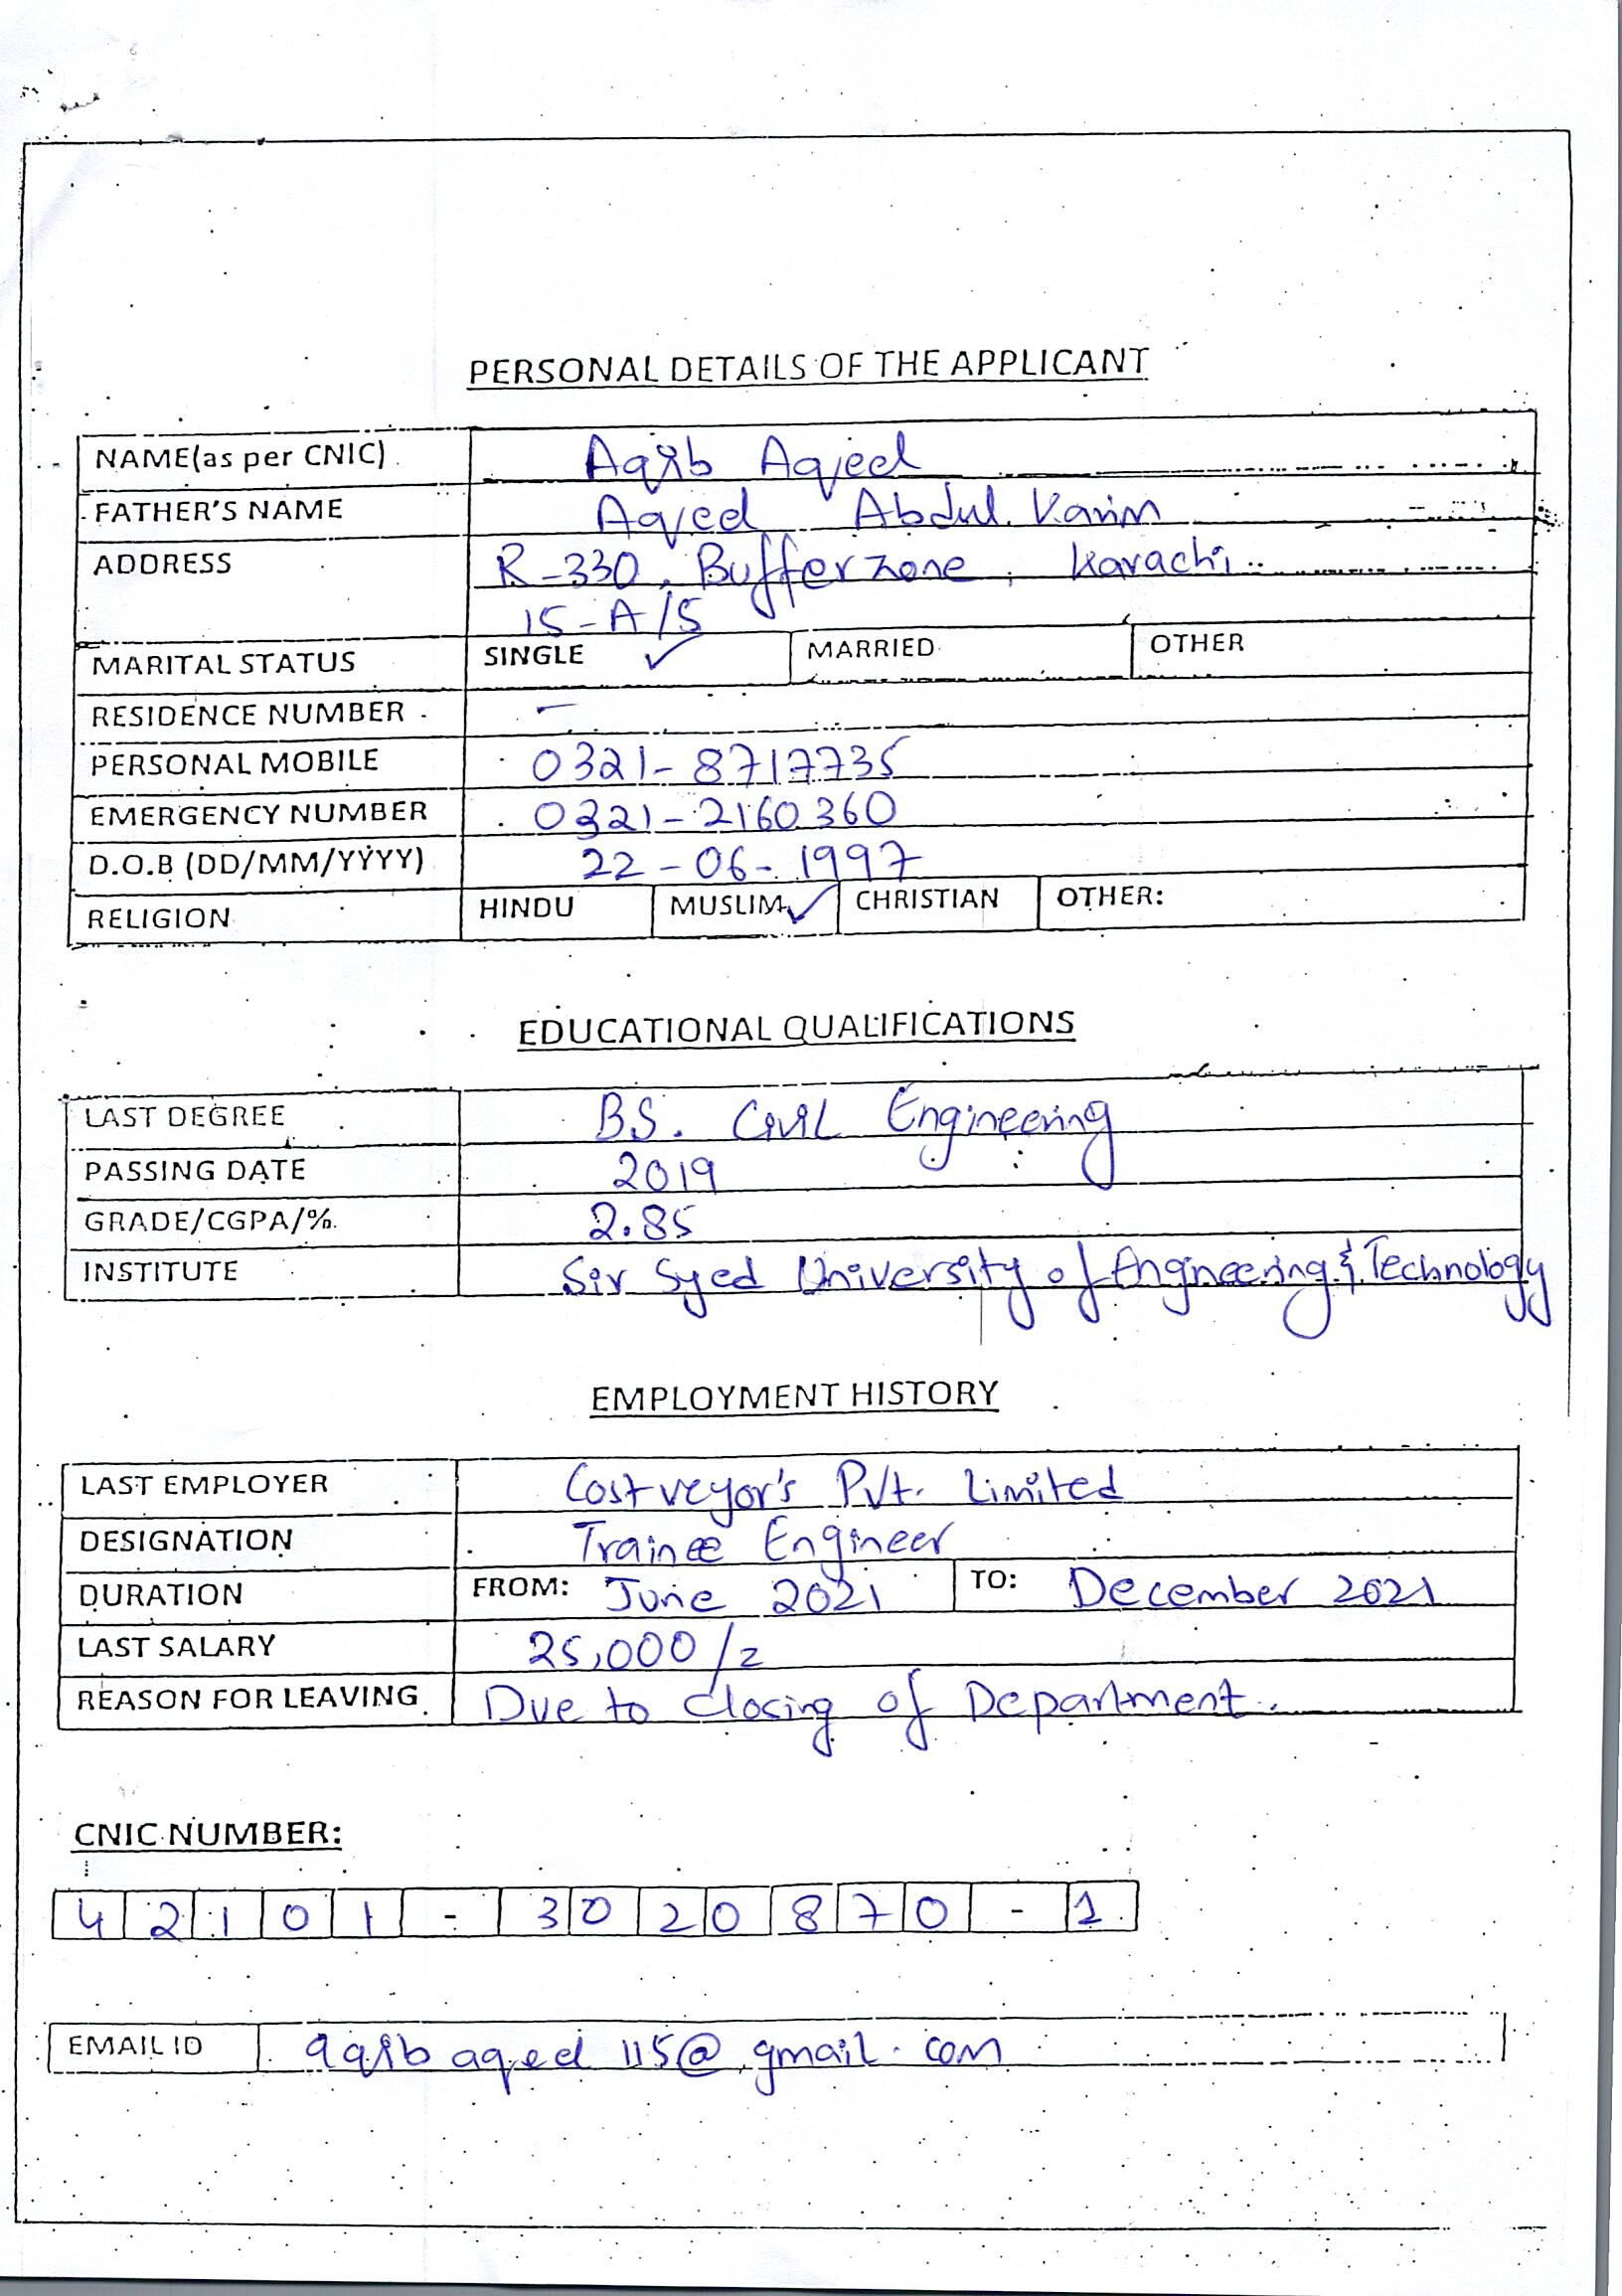 PERSONAL DETAILS OF THE APPLICANT
NAME(as per CNIC) Aqib Aqeel
FATHER'S NAME Aqeel Abdul Karim
ADDRESS R-330, Bufferzone, Karachi
15-A/5
MARITAL STATUS SINGLE ✓ MARRIED OTHER
RESIDENCE NUMBER -
PERSONAL MOBILE 0321-8717735
EMERGENCY NUMBER 0321-2160360
D.O.B (DD/MM/YYYY) 22-06-1997
RELIGION HINDU MUSLIM ✓ CHRISTIAN OTHER:
EDUCATIONAL QUALIFICATIONS
LAST DEGREE BS. Civil Engineering
PASSING DATE 2019
GRADE/CGPA/% 2.85
INSTITUTE Sir Syed University of Engineering & Technology
EMPLOYMENT HISTORY
LAST EMPLOYER Costveyor's Pvt. Limited
DESIGNATION Trainee Engineer
DURATION FROM: June 2021 TO: December 2021
LAST SALARY 25,000/=
REASON FOR LEAVING Due to closing of Department.
CNIC NUMBER:
42101-3020870-1
EMAIL ID @gmail.com